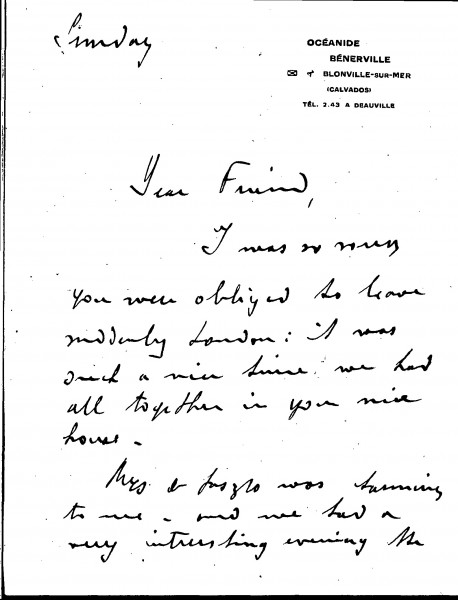 Sunday
OCÉANIDE
BÉNERVILLE
BLONVILLE-SUR-MER
(CALVADOS)
TÉL. 2.43 A DEAUVILLE
Dear Friend,
I was so sorry
you were obliged to leave
suddenly London: it was
such a nice time we had
all together in your nice
house -
Mrs de Laszlo was
to me - and we had a
very interesting evening the